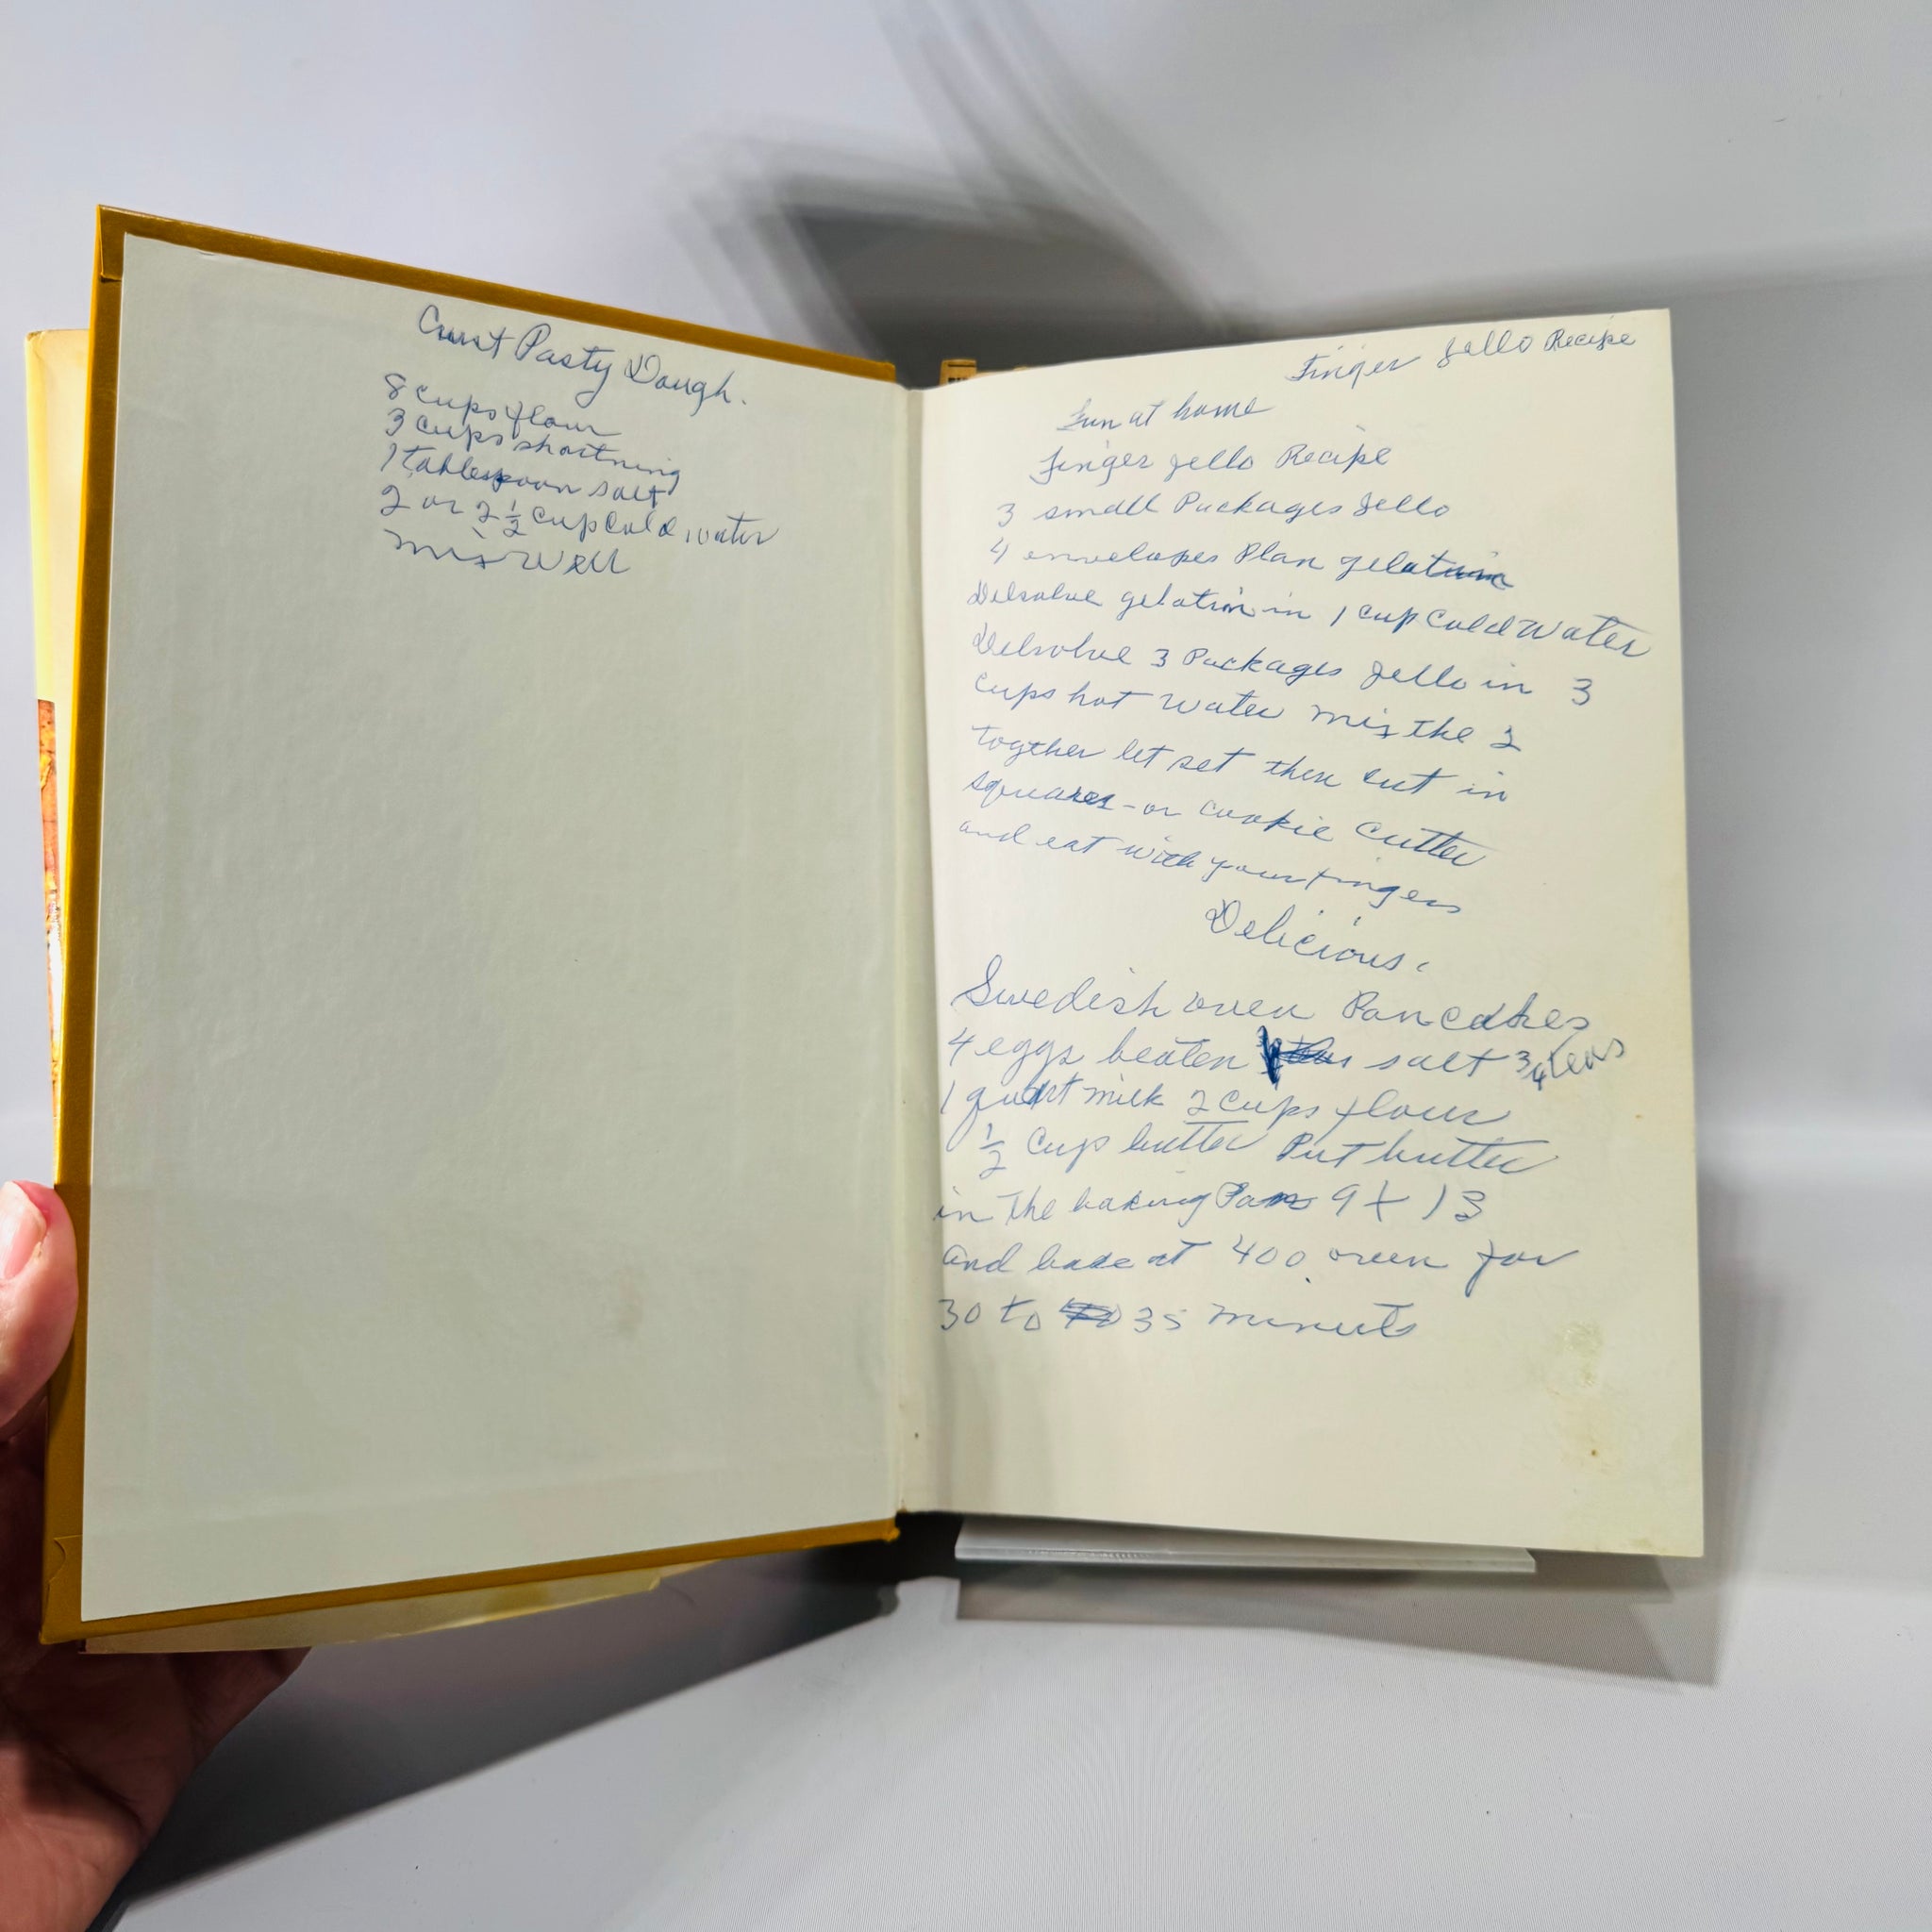 Crust Pasty Dough.
8 cups flour
3 cups shortning
1 tablespoon salt
2 or 2 1/2 cup Cold water
mix Well
Finger Jello Recipe
Fun at home
Finger Jello Recipe
3 small Packages Jello
4 envelopes Plan gelatin
Delsolve gelation in 1 cup Cold Water
Delsolve 3 Packages Jello in 3
cups hot Water mix the 2
together let set then cut in
squares - or cookie Cutter
and eat with your fingers
Delicious.
Swedish oven Pancakes
4 eggs beaten salt 3/4 teas
1 quart milk 2 Cups flour
1/2 Cup butter Put butter
in The baking Pan 9 x 13
and bake at 400 oven for
30 to 35 minuts